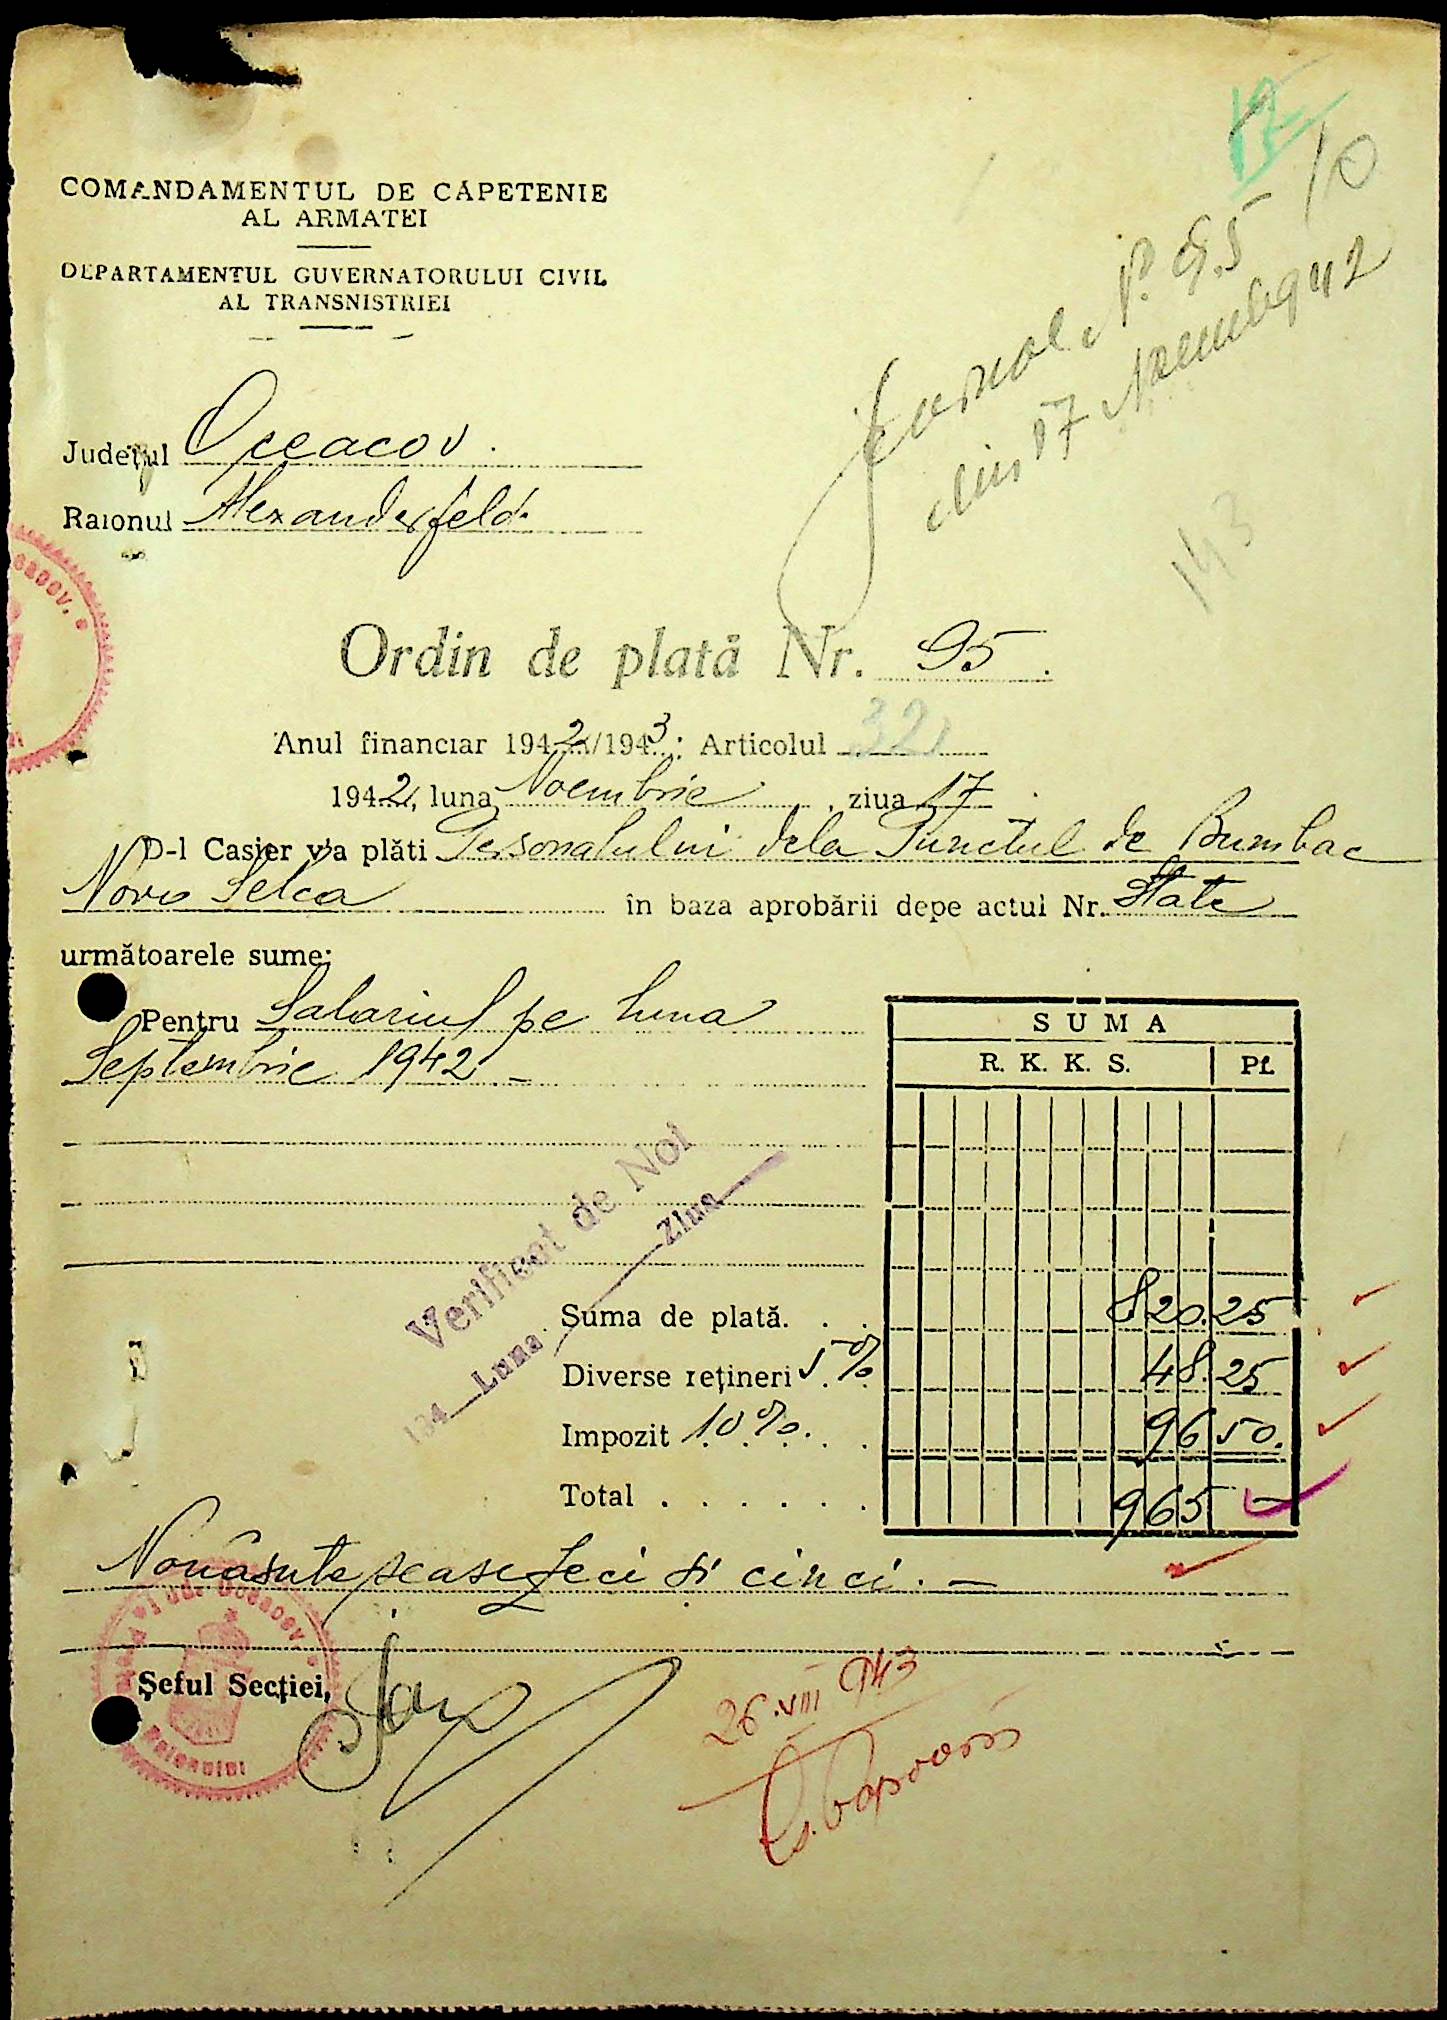 COMANDAMENTUL DE CAPETENIE
AL ARMATEI
DEPARTAMENTUL GUVERNATORULUI CIVIL
AL TRANSNISTRIEI
Jurnal N. 95
din 17 Noembr 942
10
143
Județul Oceacov.
Raionul Alexanderfeld.
Ordin de plată Nr. 95.
Anul financiar 1942/1943; Articolul 32
1942, luna Noembrie, ziua 17
D-l Casier va plăti Personalului dela Punctul de Bumbac
Novo Selca în baza aprobării depe actul Nr. State
următoarele sume:
Pentru Salariul pe luna
Septembrie 1942 –
SUMA
R. K. K. S. Pf.
Verificat de Noi
194 Luna Ziua
Suma de plată. . . 820.25
Diverse rețineri 5% 48.25
Impozit 10%. . . . 96 50.
Total . . . . . . 965 –
Nouăsute șeasezeci și cinci. –
Șeful Secției,
Raionului
26.VIII 943